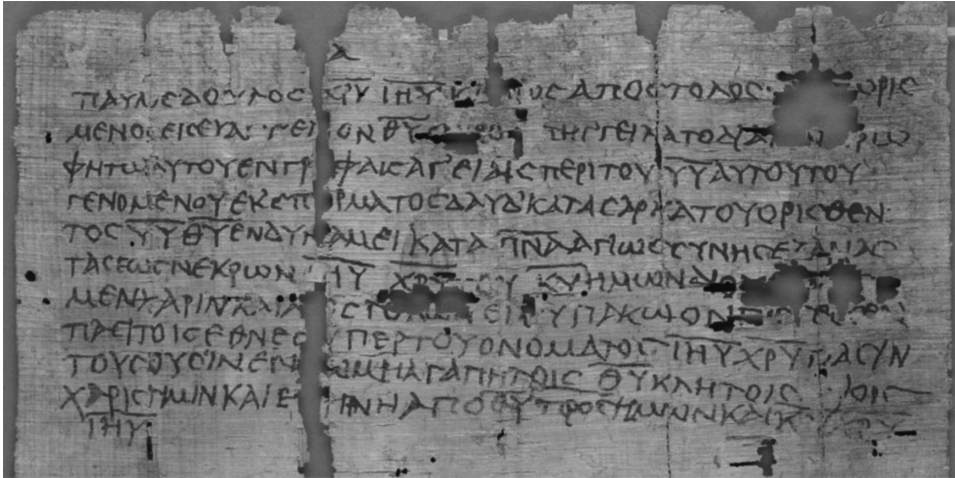 Α
ΠΑΥΛΟΣ ΔΟΥΛΟΣ ΧΡΥ ΙΗΥ ΑΠΟΣΤΟΛΟΣ ΡΙΣ
ΜΕΝΟΣ ΕΙΣ ΕΥΑΓΓΕΛΙΟΝ ΘΥ ΠΡΩ
ΦΗΤΩ ΑΥΤΟΥ ΕΝ ΓΡΑΦΑΙΣ ΑΓΕΙΑΙΣ ΠΕΡΙ ΤΟΥ ΥΥ ΑΥΤΟΥ ΤΟΥ
ΓΕΝΟΜΕΝΟΥ ΕΚ ΣΠΕΡΜΑΤΟΣ ΔΑΥΔ ΚΑΤΑ ΣΑΡΚΑ ΤΟΥ ΟΡΙΣΘΕΝ
ΤΟΣ ΥΥ ΘΥ ΕΝ ΔΥΝΑΜΕΙ ΚΑΤΑ ΠΝΑ ΑΓΙΩΣΣΥΝΗΣ ΕΞ ΑΝΑΣ
ΤΑΣΕΩΣ ΝΕΚΡΩΝ ΙΗΥ ΧΡΥ ΤΟΥ ΚΥ ΗΜΩΝ
ΜΕΝ ΧΑΡΙΝ ΚΑΙ ΕΙΣ ΥΠΑΚΩΟΝ
ΠΑΣΙ ΤΟΙΣ ΕΘΝΕΣΙ ΥΠΕΡ ΤΟΥ ΟΝΟΜΑΤΟΣ ΙΗΥ ΧΡΥ ΠΑΣΙΝ
ΤΟΥΣ ΟΥΣΙΝ ΕΝ ΡΩΜΗ ΑΓΑΠΗΤΟΙΣ ΘΥ ΚΛΗΤΟΙΣ
ΧΑΡΙΣ ΗΜΙΝ ΚΑΙ ΕΙΡΗΝΗ ΑΠΟ ΘΥ ΠΡΟΣ ΗΜΩΝ ΚΑΙ ΚΥ ΧΡΥ
ΙΗΥ